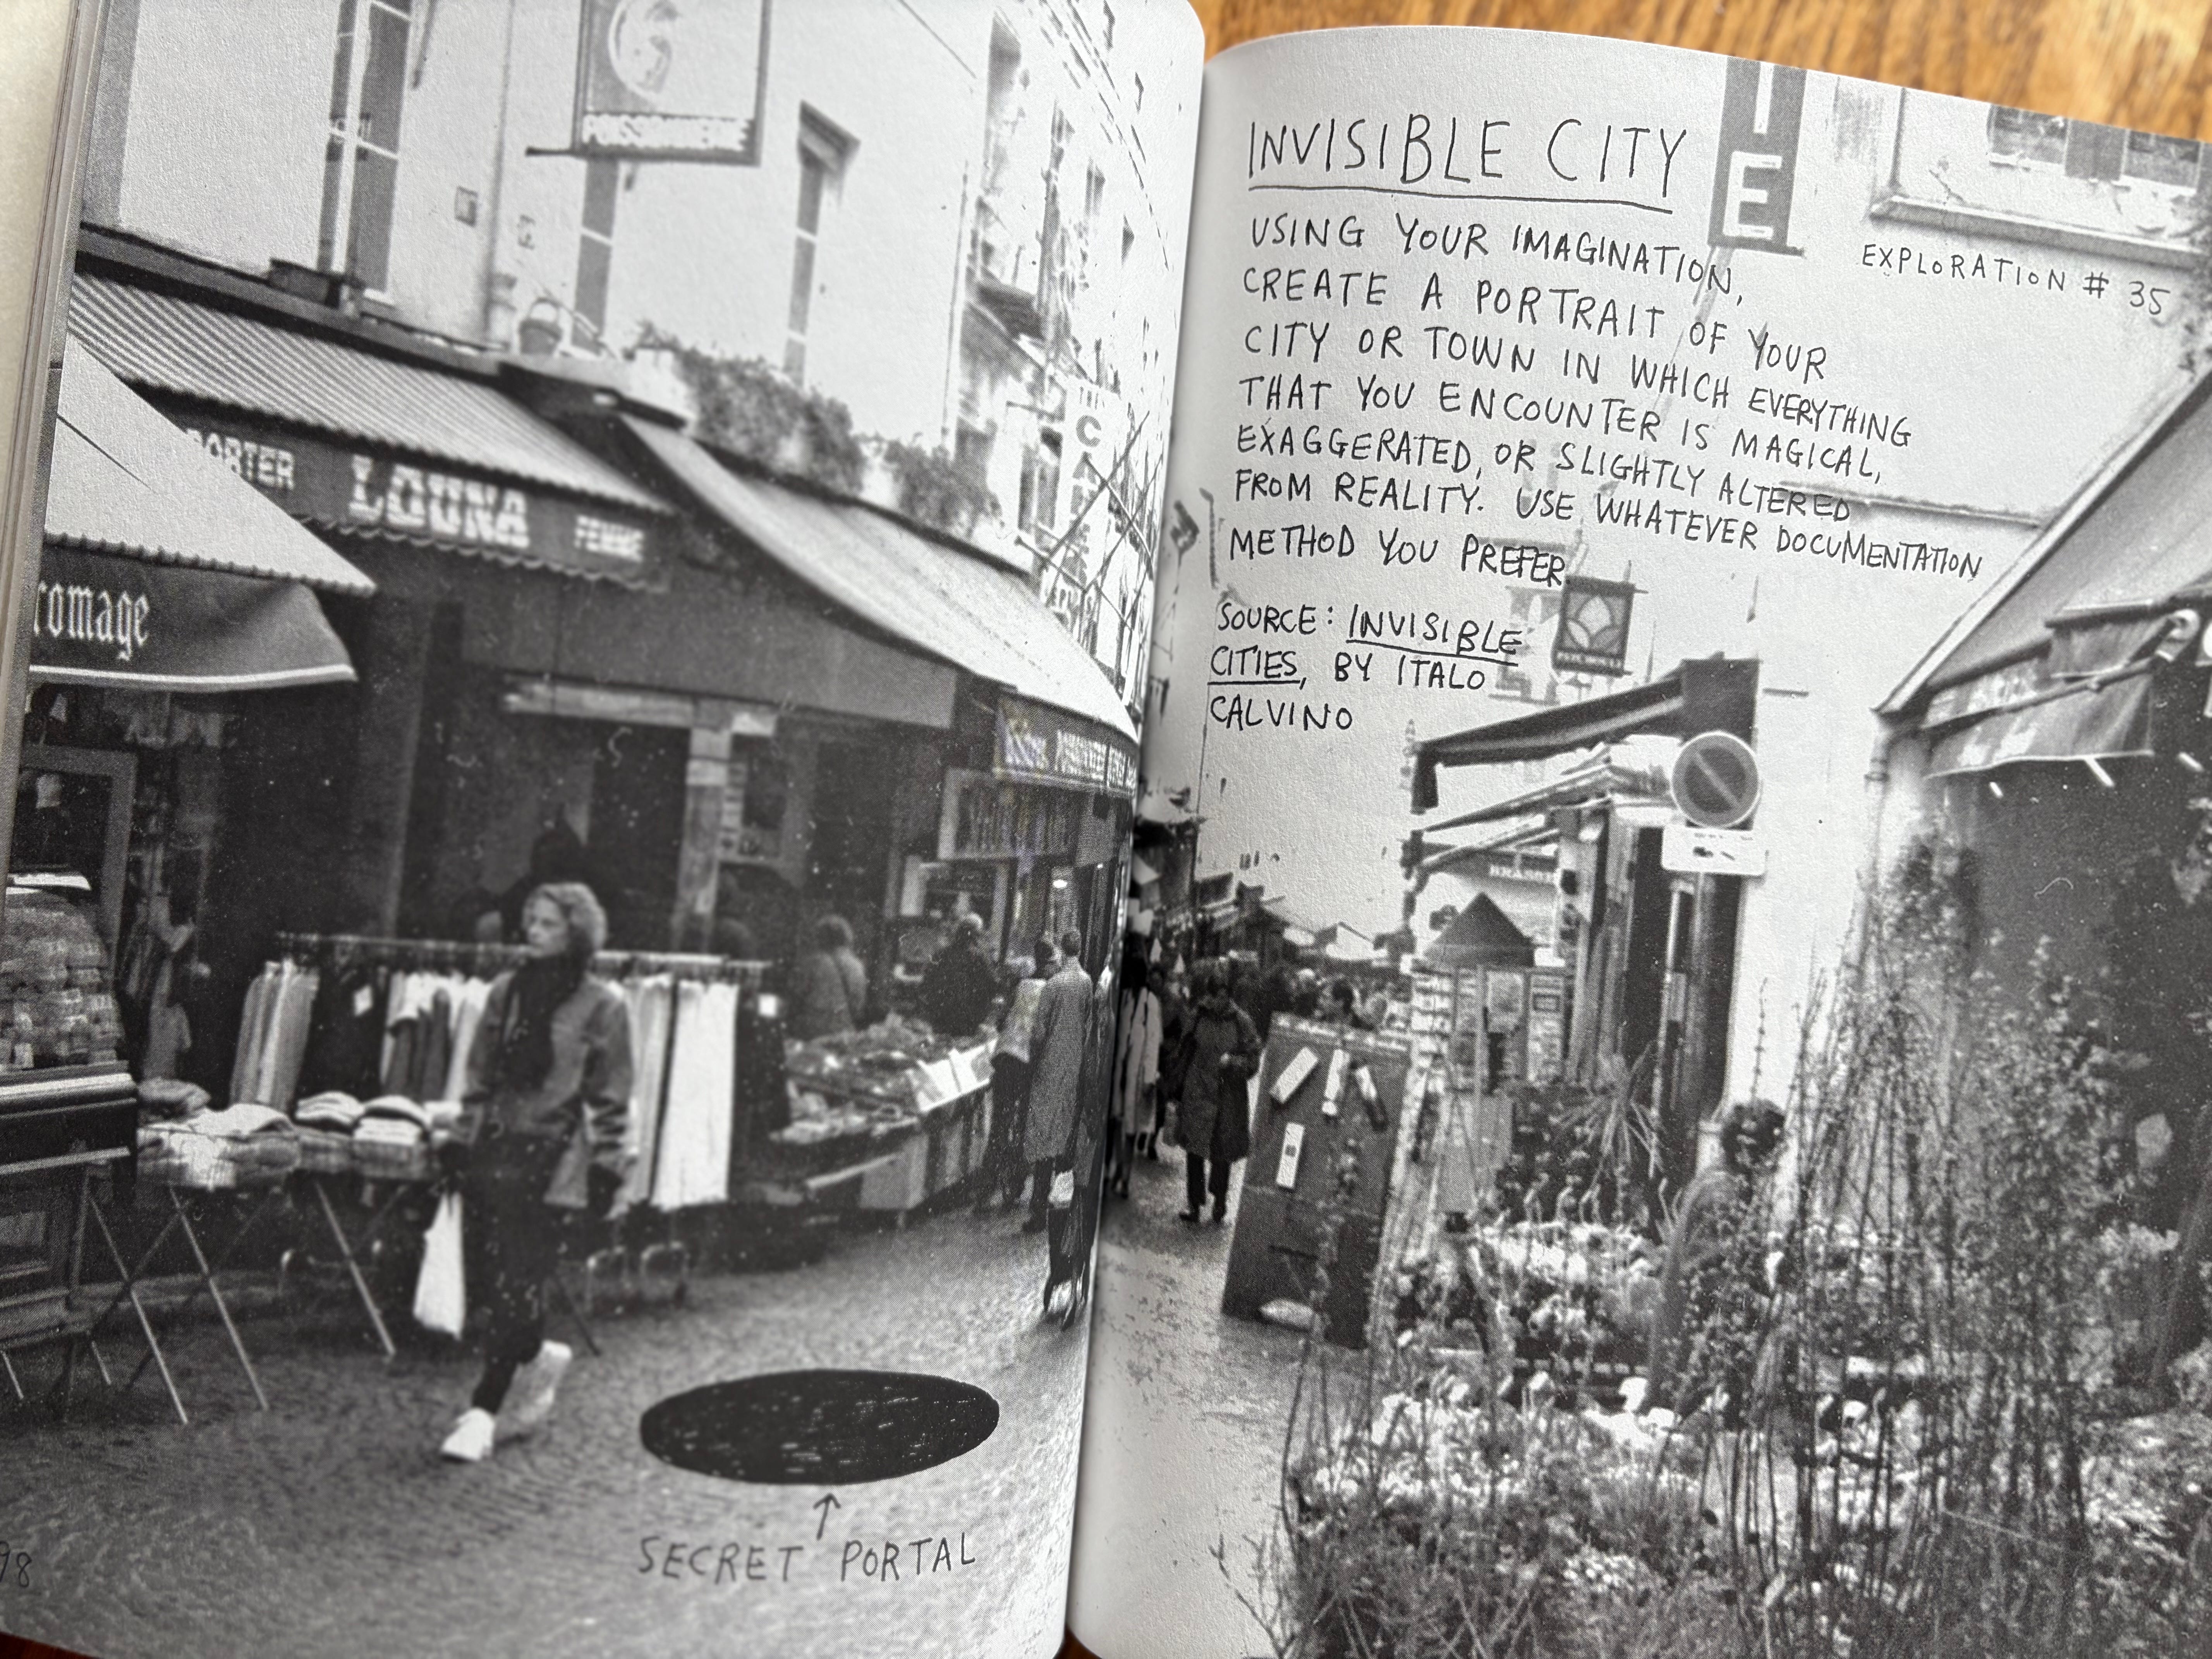 POISSONNERIE
PORTER LOUNA FEMME
romage
THE
SECRET PORTAL
98
IE
INVISIBLE CITY
EXPLORATION # 35
USING YOUR IMAGINATION,
CREATE A PORTRAIT OF YOUR
CITY OR TOWN IN WHICH EVERYTHING
THAT YOU ENCOUNTER IS MAGICAL,
EXAGGERATED, OR SLIGHTLY ALTERED
FROM REALITY. USE WHATEVER DOCUMENTATION
METHOD YOU PREFER.
SOURCE: INVISIBLE
CITIES, BY ITALO
CALVINO